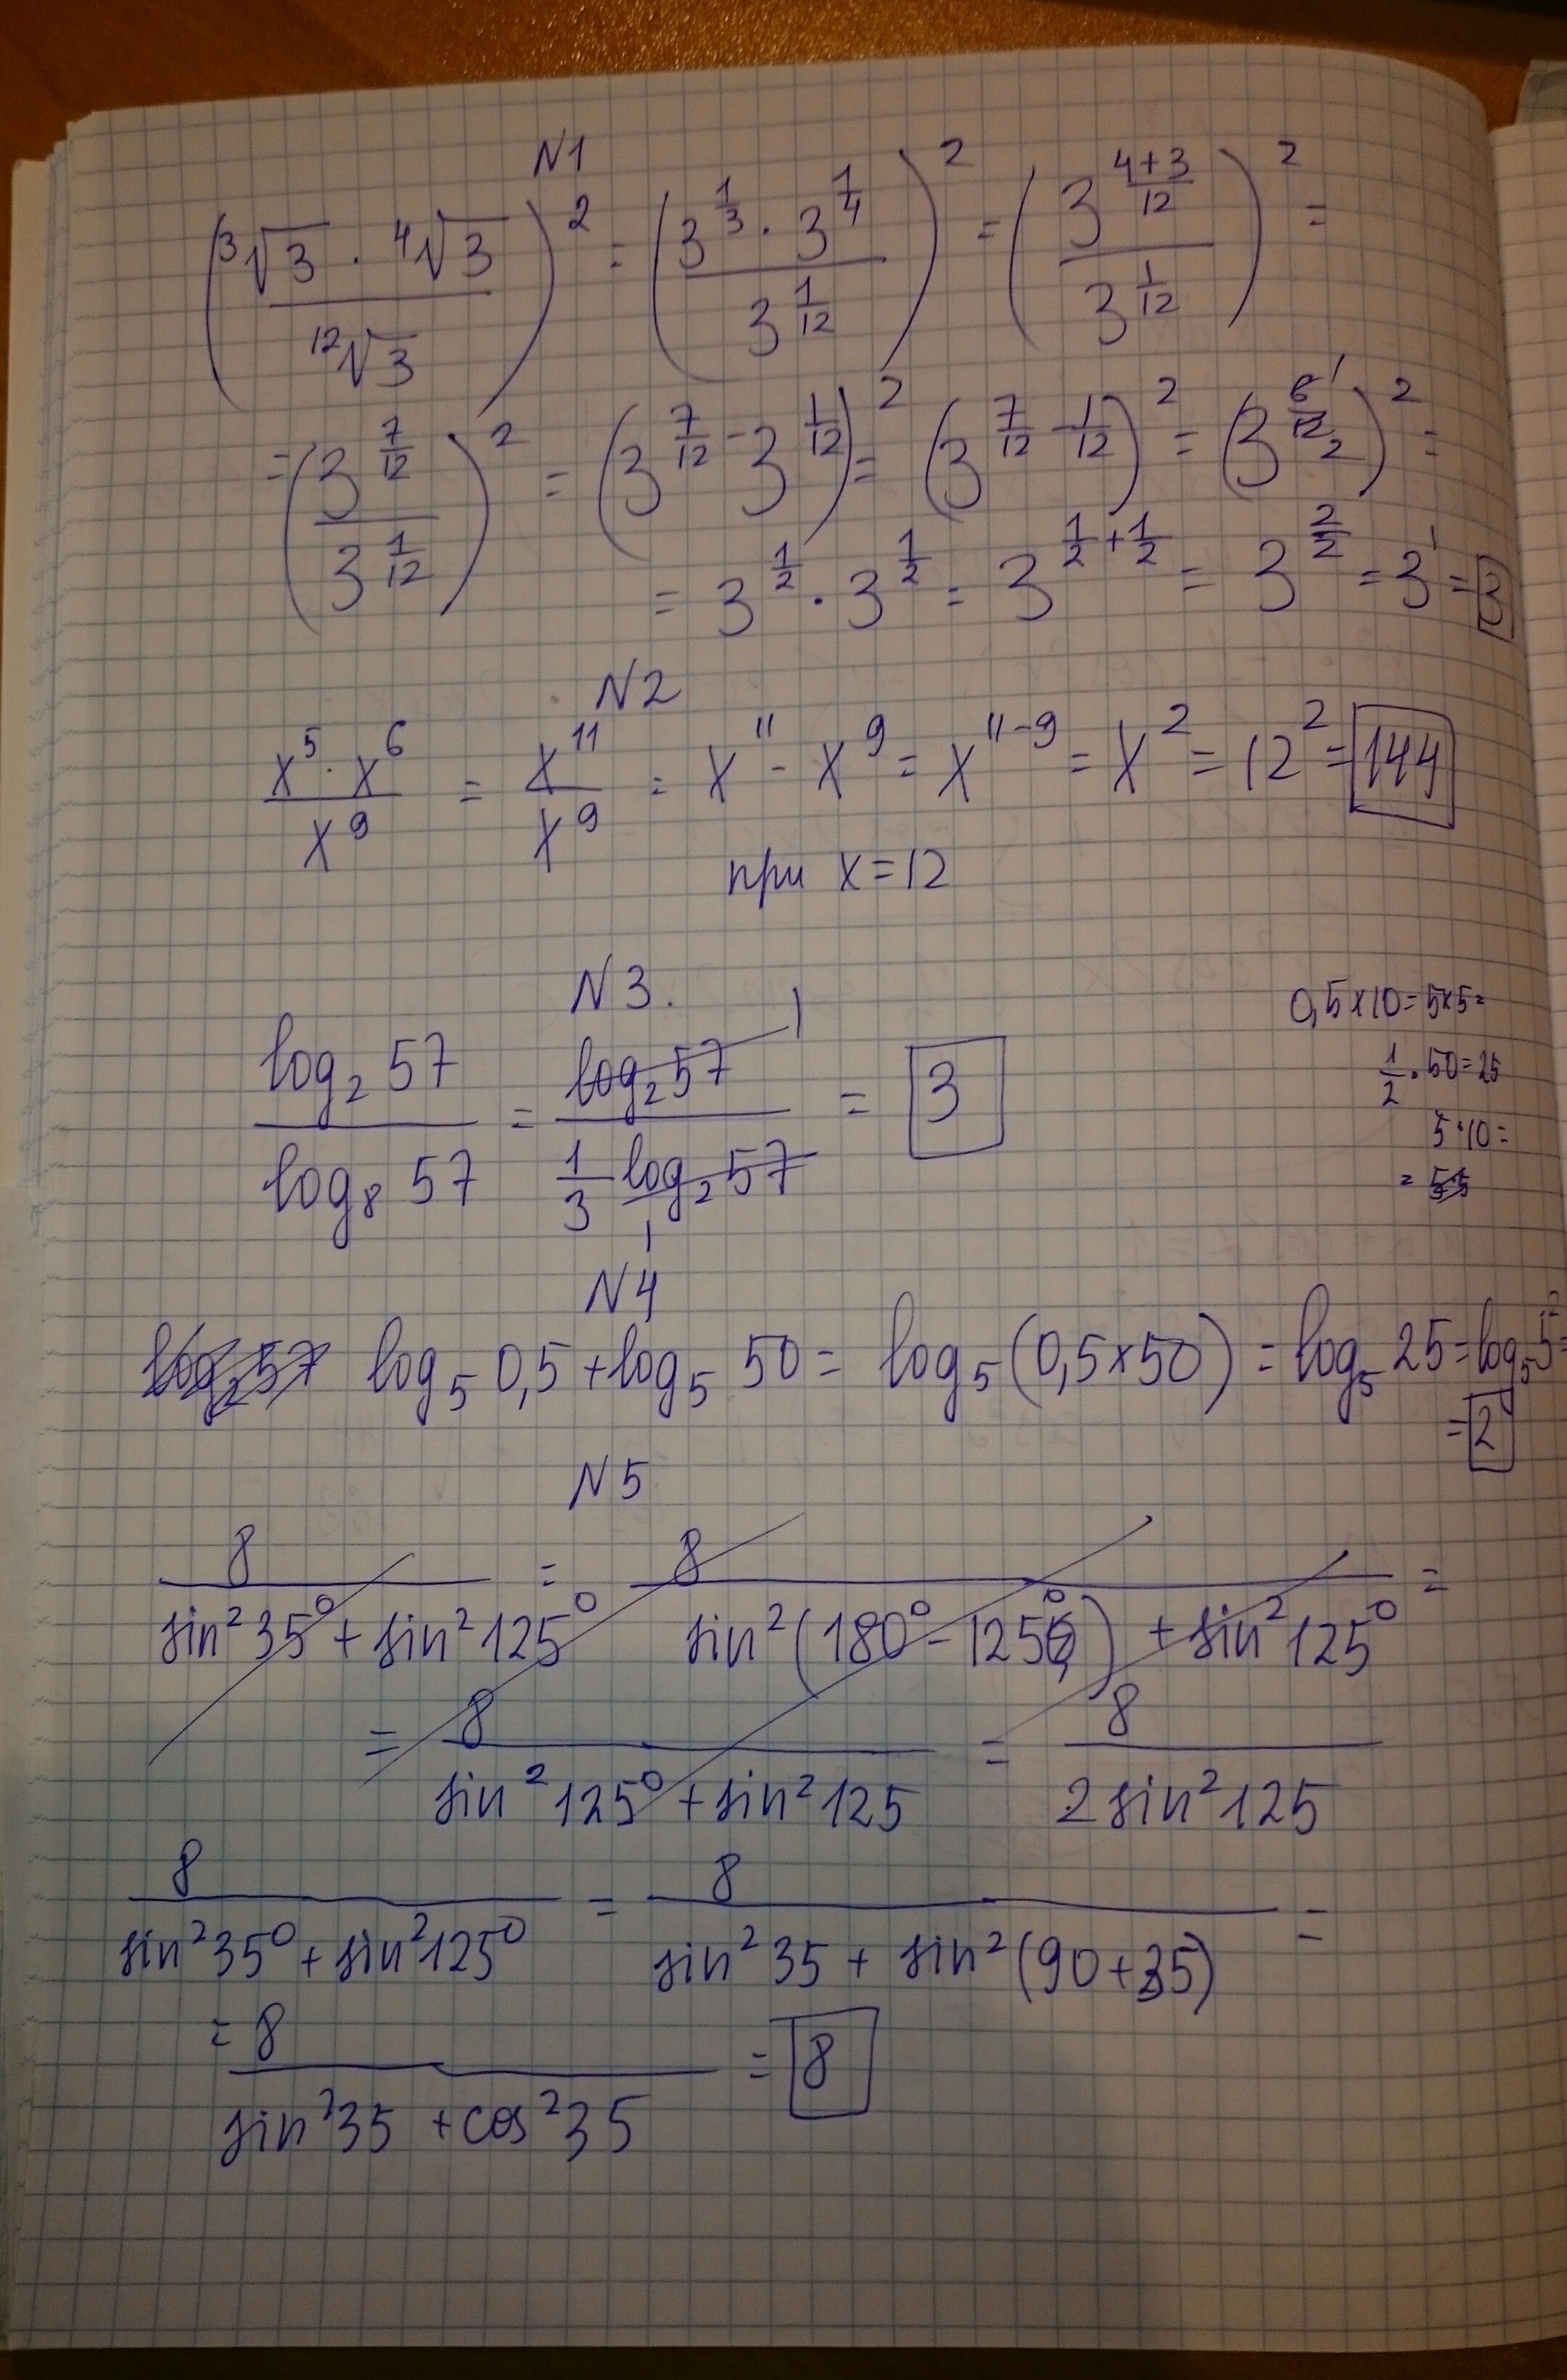 N1
(∛3 · ∜3 / ¹²√3)² = (3^(1/3) · 3^(1/4) / 3^(1/12))² = (3^((4+3)/12) / 3^(1/12))² =
= (3^(7/12) / 3^(1/12))² = (3^(7/12) - 3^(1/12))² = (3^(7/12 - 1/12))² = (3^(6/12) 1/2)² =
= 3^(1/2) · 3^(1/2) = 3^(1/2 + 1/2) = 3^(2/2) = 3¹ = 3
N2
x⁵ · x⁶ / x⁹ = x¹¹ / x⁹ = x¹¹ - x⁹ = x¹¹⁻⁹ = x² = 12² = 144
при x = 12
N3.
log₂ 57 / log₈ 57 = log₂ 57 / (1/3 log₂ 57) = 3
1
1
0,5×10 = 5×5=
1/2 · 50 = 25
5·10 =
=
N4
log₂ 57 log₅ 0,5 + log₅ 50 = log₅ (0,5×50) = log₅ 25 = log₅ 5² =
= 2
N5
8 / (sin² 35° + sin² 125°) = 8 / (sin² (180° - 125°) + sin² 125°) =
= 8 / (sin² 125° + sin² 125) = 8 / (2 sin² 125)
8 / (sin² 35° + sin² 125°) = 8 / (sin² 35 + sin² (90+35)) =
= 8 / (sin² 35 + cos² 35) = 8